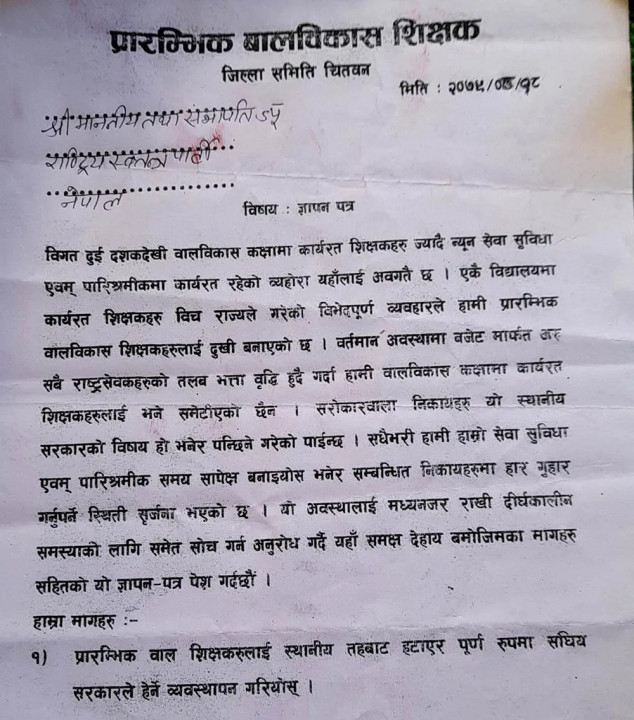 प्रारम्भिक बालविकास शिक्षक
जिल्ला समिति चितवन
मिति : २०७९/०८/१८
श्री माननीय तथा सभापति ज्यू
राष्ट्रिय स्वतन्त्र पार्टी
नेपाल
विषय : ज्ञापन पत्र
विगत दुई दशकदेखी वालविकास कक्षामा कार्यरत शिक्षकहरु ज्यादै न्यून सेवा सुविधा
एवम् पारिश्रमीकमा कार्यरत रहेको व्यहोरा यहाँलाई अवगतै छ । एकै विद्यालयमा
कार्यरत शिक्षकहरु विच राज्यले गरेको विभेदपूर्ण व्यवहारले हामी प्रारम्भिक
वालविकास शिक्षकहरुलाई दुखी बनाएको छ । वर्तमान अवस्थामा बजेट मार्फत अरु
सबै राष्ट्रसेवकहरुको तलब भत्ता वृद्धि हुदै गर्दा हामी वालविकास कक्षामा कार्यरत
शिक्षकहरुलाई भने समेटीएको छैन । सरोकारवाला निकायहरु यो स्थानीय
सरकारको विषय हो भनेर पन्छिने गरेको पाईन्छ । सधैभरी हामी हाम्रो सेवा सुविधा
एवम् पारिश्रमीक समय सापेक्ष बनाइयोस भनेर सम्बन्धित निकायहरुमा हार गुहार
गर्नुपर्ने स्थिती सृर्जना भएको छ । यो अवस्थालाई मध्यनजर राखी दीर्घकालीन
समस्याको लागि समेत सोच गर्न अनुरोध गर्दै यहाँ समक्ष देहाय बमोजिमका मागहरु
सहितको यो ज्ञापन-पत्र पेश गर्दछौं ।
हाम्रा मागहरु :-
१) प्रारम्भिक वाल शिक्षकरुलाई स्थानीय तहबाट हटाएर पूर्ण रुपमा संघिय
सरकारले हेर्ने व्यवस्थापन गरियोस् ।